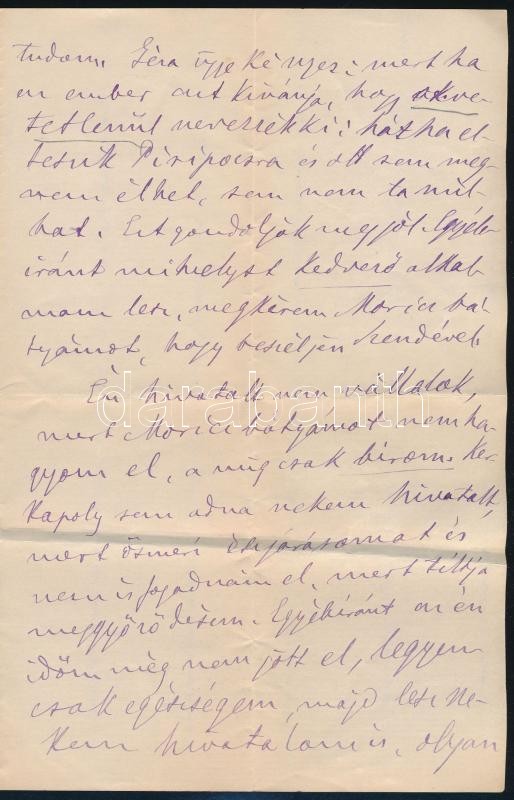 tudom. Géza ügye kényes; mert ha
az ember azt kívánja, hogy okve-
tetlenül nevezzék ki; hátha el
teszik Piripocsra és ott sem meg
nem élhet, sem nem tanul-
hat. Ezt gondolják meg jól. Egyéb-
iránt mihelyst kedvező alkal-
mam lesz, megkérem Móricz bá-
tyámot, hogy beszéljen Szendével.
Én hivatalt nem vállalok,
mert Móricz bátyámot nem ha-
gyom el, a míg csak bírom. Ker-
kapoly sem adna nekem hivatalt,
mert ösmeri eljárásomat és
nem is fogadnám el, mert tiltja
meggyőződésem. Egyébiránt az én
időm még nem jött el, legyen
csak egészségem, majd lesz ne-
kem hivatalom is, olyan
darabanth